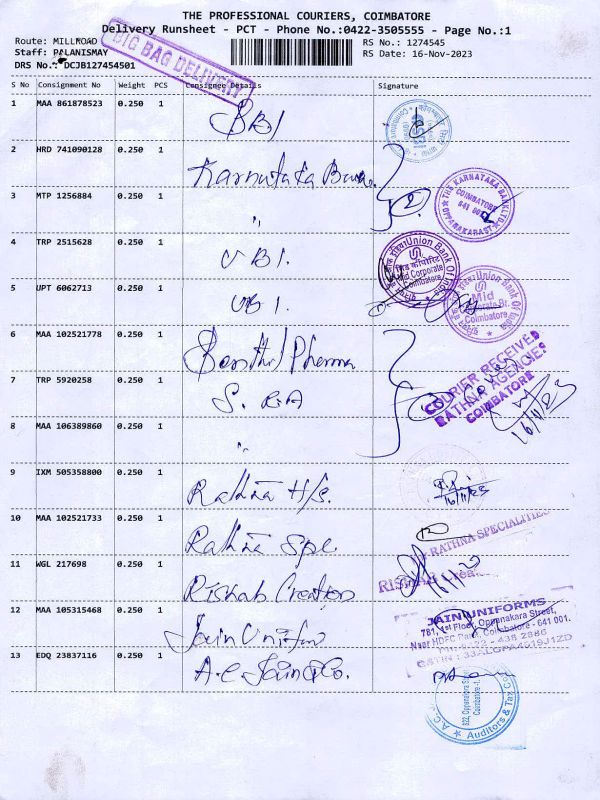 THE PROFESSIONAL COURIERS, COIMBATORE
Delivery Runsheet - PCT - Phone No.:0422-3505555 - Page No.:1
Route: MILLROAD
RS No.: 1274545
Staff: PALANISMAY
RS Date: 16-Nov-2023
DRS No.: DCJB127454501
BIG BAG DELIVERY
S No Consignment No Weight PCS Consignee Details Signature
1 MAA 861878523 0.250 1 SBI
2 HRD 741090128 0.250 1 Karnataka Bank
THE KARNATAKA BANK LTD
COIMBATORE
3 MTP 1256884 0.250 1 "
4 TRP 2515628 0.250 1 UBI.
Union Bank Of India
Mid Corporate
Coimbatore
5 UPT 6062713 0.250 1 UBI.
Union Bank Of India
Mid
Corporate Br.
Coimbatore
6 MAA 102521778 0.250 1 Pharma
COURIER RECEIVED
RATHNA AGENCIES
COIMBATORE
7 TRP 5920258 0.250 1
16/11/23
8 MAA 106389860 0.250 1 "
9 IXM 505358800 0.250 1 Rathna H/s.
16/11/23
10 MAA 102521733 0.250 1 Rathna Spl
RATHNA SPECIALITIES
11 WGL 217698 0.250 1 Rishab Creation
12 MAA 105315468 0.250 1 Jain Uniform
JAIN UNIFORMS
781, 1st Floor, Oppanakara Street,
Near HDFC Bank, Coimbatore - 641 001.
13 EDQ 23837116 0.250 1 A.C. Jain & Co.
Auditors & Tax